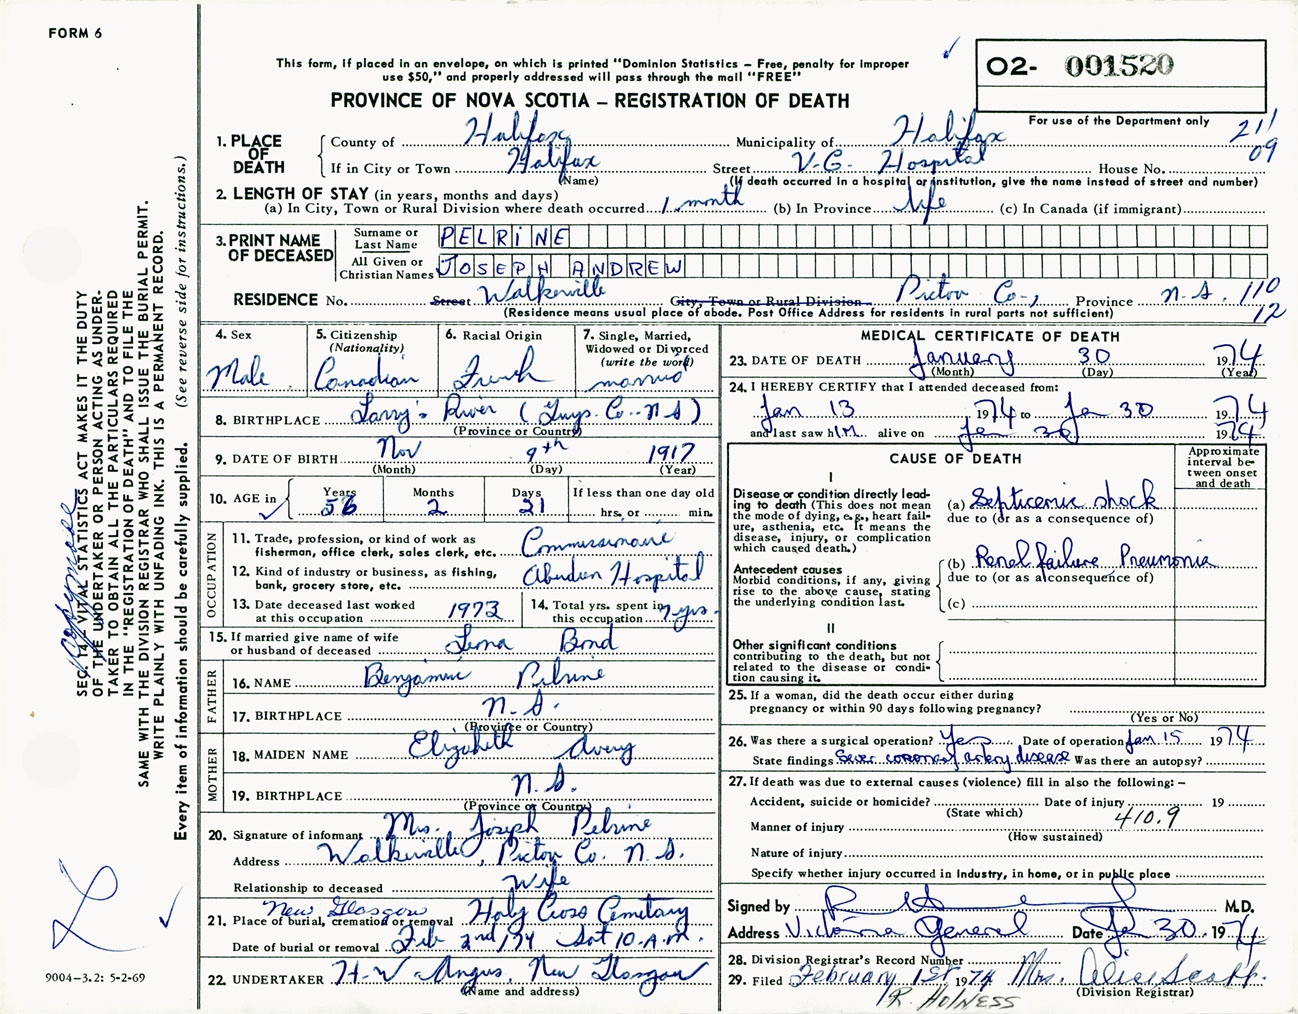 FORM 6
This form, if placed in an envelope, on which is printed "Dominion Statistics – Free, penalty for improper
use $50," and properly addressed will pass through the mail "FREE"
PROVINCE OF NOVA SCOTIA – REGISTRATION OF DEATH
O2- 001520
For use of the Department only
211
09
1. PLACE OF DEATH
County of Halifax Municipality of Halifax
If in City or Town Halifax Street V-G. Hospital House No.
(Name) (If death occurred in a hospital or institution, give the name instead of street and number)
2. LENGTH OF STAY (in years, months and days)
(a) In City, Town or Rural Division where death occurred 1 month (b) In Province life (c) In Canada (if immigrant)
3. PRINT NAME OF DECEASED
Surname or Last Name PELRINE
All Given or Christian Names JOSEPH ANDREW
RESIDENCE No. Street Walkerville City, Town or Rural Division Pictou Co., Province N.S. 110
12
(Residence means usual place of abode. Post Office Address for residents in rural parts not sufficient)
4. Sex
Male
5. Citizenship
(Nationality)
Canadian
6. Racial Origin
French
7. Single, Married,
Widowed or Divorced
(write the word)
married
8. BIRTHPLACE Larry's River (Guys. Co. - N S)
(Province or Country)
9. DATE OF BIRTH Nov 9th 1917
(Month) (Day) (Year)
10. AGE in Years 56 Months 2 Days 21 If less than one day old
hrs. or min.
OCCUPATION
11. Trade, profession, or kind of work as
fisherman, office clerk, sales clerk, etc. Commissionaire
12. Kind of industry or business, as fishing,
bank, grocery store, etc. Aberdeen Hospital
13. Date deceased last worked
at this occupation 1973
14. Total yrs. spent in
this occupation 7 yrs.
15. If married give name of wife
or husband of deceased Bond
FATHER
16. NAME Benjamin Pelrine
17. BIRTHPLACE N.S.
(Province or Country)
MOTHER
18. MAIDEN NAME Elizabeth Avery
19. BIRTHPLACE N.S.
(Province or Country)
20. Signature of informant Mrs. Joseph Pelrine
Address Walkerville, Pictou Co. N.S.
Relationship to deceased Wife
New Glasgow
21. Place of burial, cremation or removal Holy Cross Cemetary
Date of burial or removal Feb 2nd/74 Sat 10 A.M.
22. UNDERTAKER H-W Angus, New Glasgow
(Name and address)
MEDICAL CERTIFICATE OF DEATH
23. DATE OF DEATH January 30 1974
(Month) (Day) (Year)
24. I HEREBY CERTIFY that I attended deceased from:
Jan 13 1974 to Jan 30 1974
and last saw him alive on Jan 30 1974
CAUSE OF DEATH
Approximate
interval be-
tween onset
and death
I
Disease or condition directly lead-
ing to death (This does not mean
the mode of dying, e.g., heart fail-
ure, asthenia, etc. It means the
disease, injury, or complication
which caused death.)
(a) Septicemic shock
due to (or as a consequence of)
Antecedent causes
Morbid conditions, if any, giving
rise to the above cause, stating
the underlying condition last.
(b) Renal failure Pneumonia
due to (or as a consequence of)
(c)
II
Other significant conditions
contributing to the death, but not
related to the disease or condi-
tion causing it.
25. If a woman, did the death occur either during
pregnancy or within 90 days following pregnancy?
(Yes or No)
26. Was there a surgical operation? Yes Date of operation Jan 15 1974
State findings Sever coronary artery disease Was there an autopsy?
27. If death was due to external causes (violence) fill in also the following: –
Accident, suicide or homicide? Date of injury 19
(State which)
410.9
Manner of injury
(How sustained)
Nature of injury
Specify whether injury occurred in Industry, in home, or in public place
Signed by M.D.
Address Victoria General Date Jan 30. 1974
28. Division Registrar's Record Number
29. Filed February 1st 1974 Mrs. Alice Scott.
(Division Registrar)
R. HOLNESS
SEC. 14 VITAL STATISTICS ACT MAKES IT THE DUTY
OF THE UNDERTAKER OR PERSON ACTING AS UNDER-
TAKER TO OBTAIN ALL THE PARTICULARS REQUIRED
IN THE "REGISTRATION OF DEATH" AND TO FILE THE
SAME WITH THE DIVISION REGISTRAR WHO SHALL ISSUE THE BURIAL PERMIT.
WRITE PLAINLY WITH UNFADING INK. THIS IS A PERMANENT RECORD.
Every item of information should be carefully supplied. (See reverse side for instructions.)
copy made
9004-3.2: 5-2-69